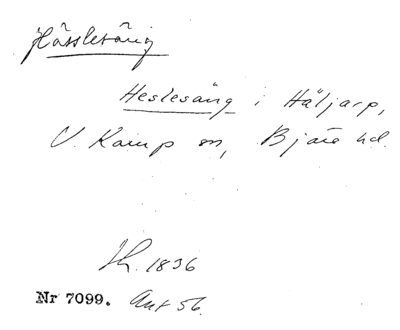 Hässlesäng
Heslesäng i Häljarp,
V. Karup sn, Bjäre hd.
Sk. 1836
Nr 7099. Ant 56